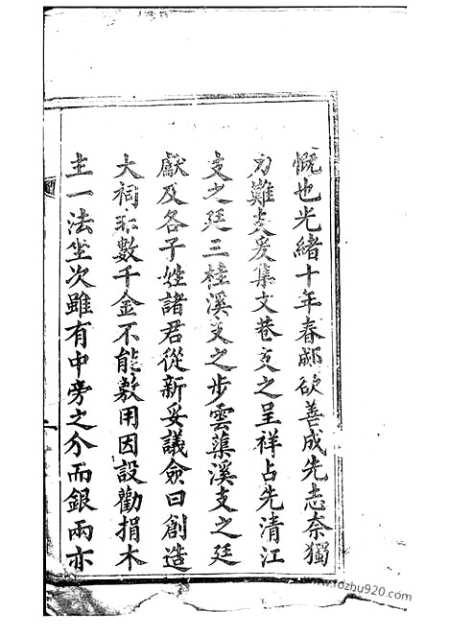 慨也光緒十年春郕欲善成先志奈獨
力難支爰集文巷支之呈祥占先清江
支之廷三桂溪支之步雲蕖溪支之廷
獻及各子姓諸君從新妥議僉曰創造
大祠非數千金不能敷用因設勸捐木
主一法坐次雖有中旁之分而銀兩亦
www.fozhu920.com